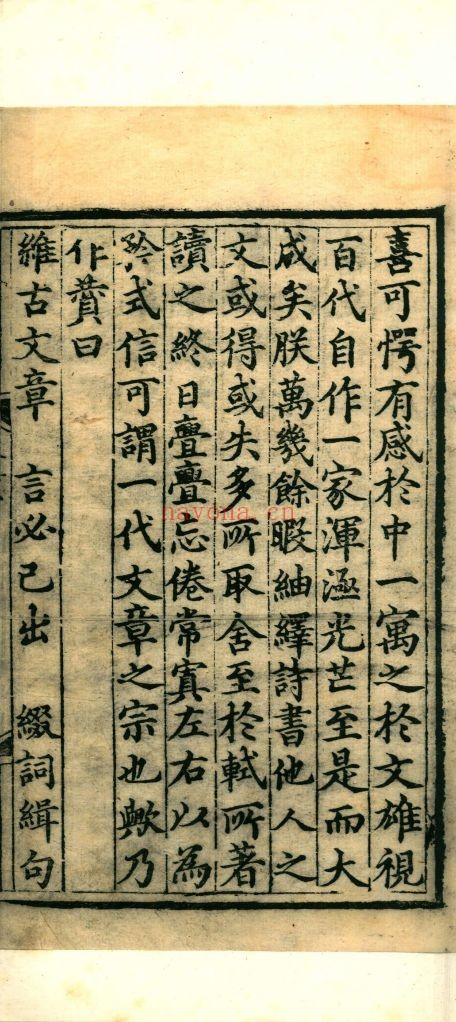 喜可愕有感於中一寓之於文雄視
百代自作一家渾涵光芒至是而大
成矣朕萬幾餘暇紬繹詩書他人之
文或得或失多所取舍至於軾所著
讀之終日亹亹忘倦常寘左右以為
矜式信可謂一代文章之宗也歟乃
作贊曰
維古文章 言必己出 綴詞緝句
nayona.cn